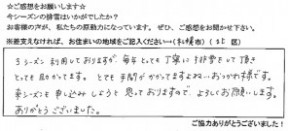 ☆ご感想をお願いします☆
今シーズンの排雪はいかがでしたか？
お客様の声が、私たちの原動力になっています。ぜひ、ご感想をお聞かせ下さい。
※差支えなければ、お住まいの地域をご記入ください（札幌市）（北区）
3シーズン利用しておりますが、毎年とても丁寧に排雪をして頂き
とても助かってます。とても手間がかかってますよね… おつかれ様です。
来シーズンも申し込みしようと思っておりますので、よろしくお願いします。
ありがとうございました。
ご協力ありがとうございました！